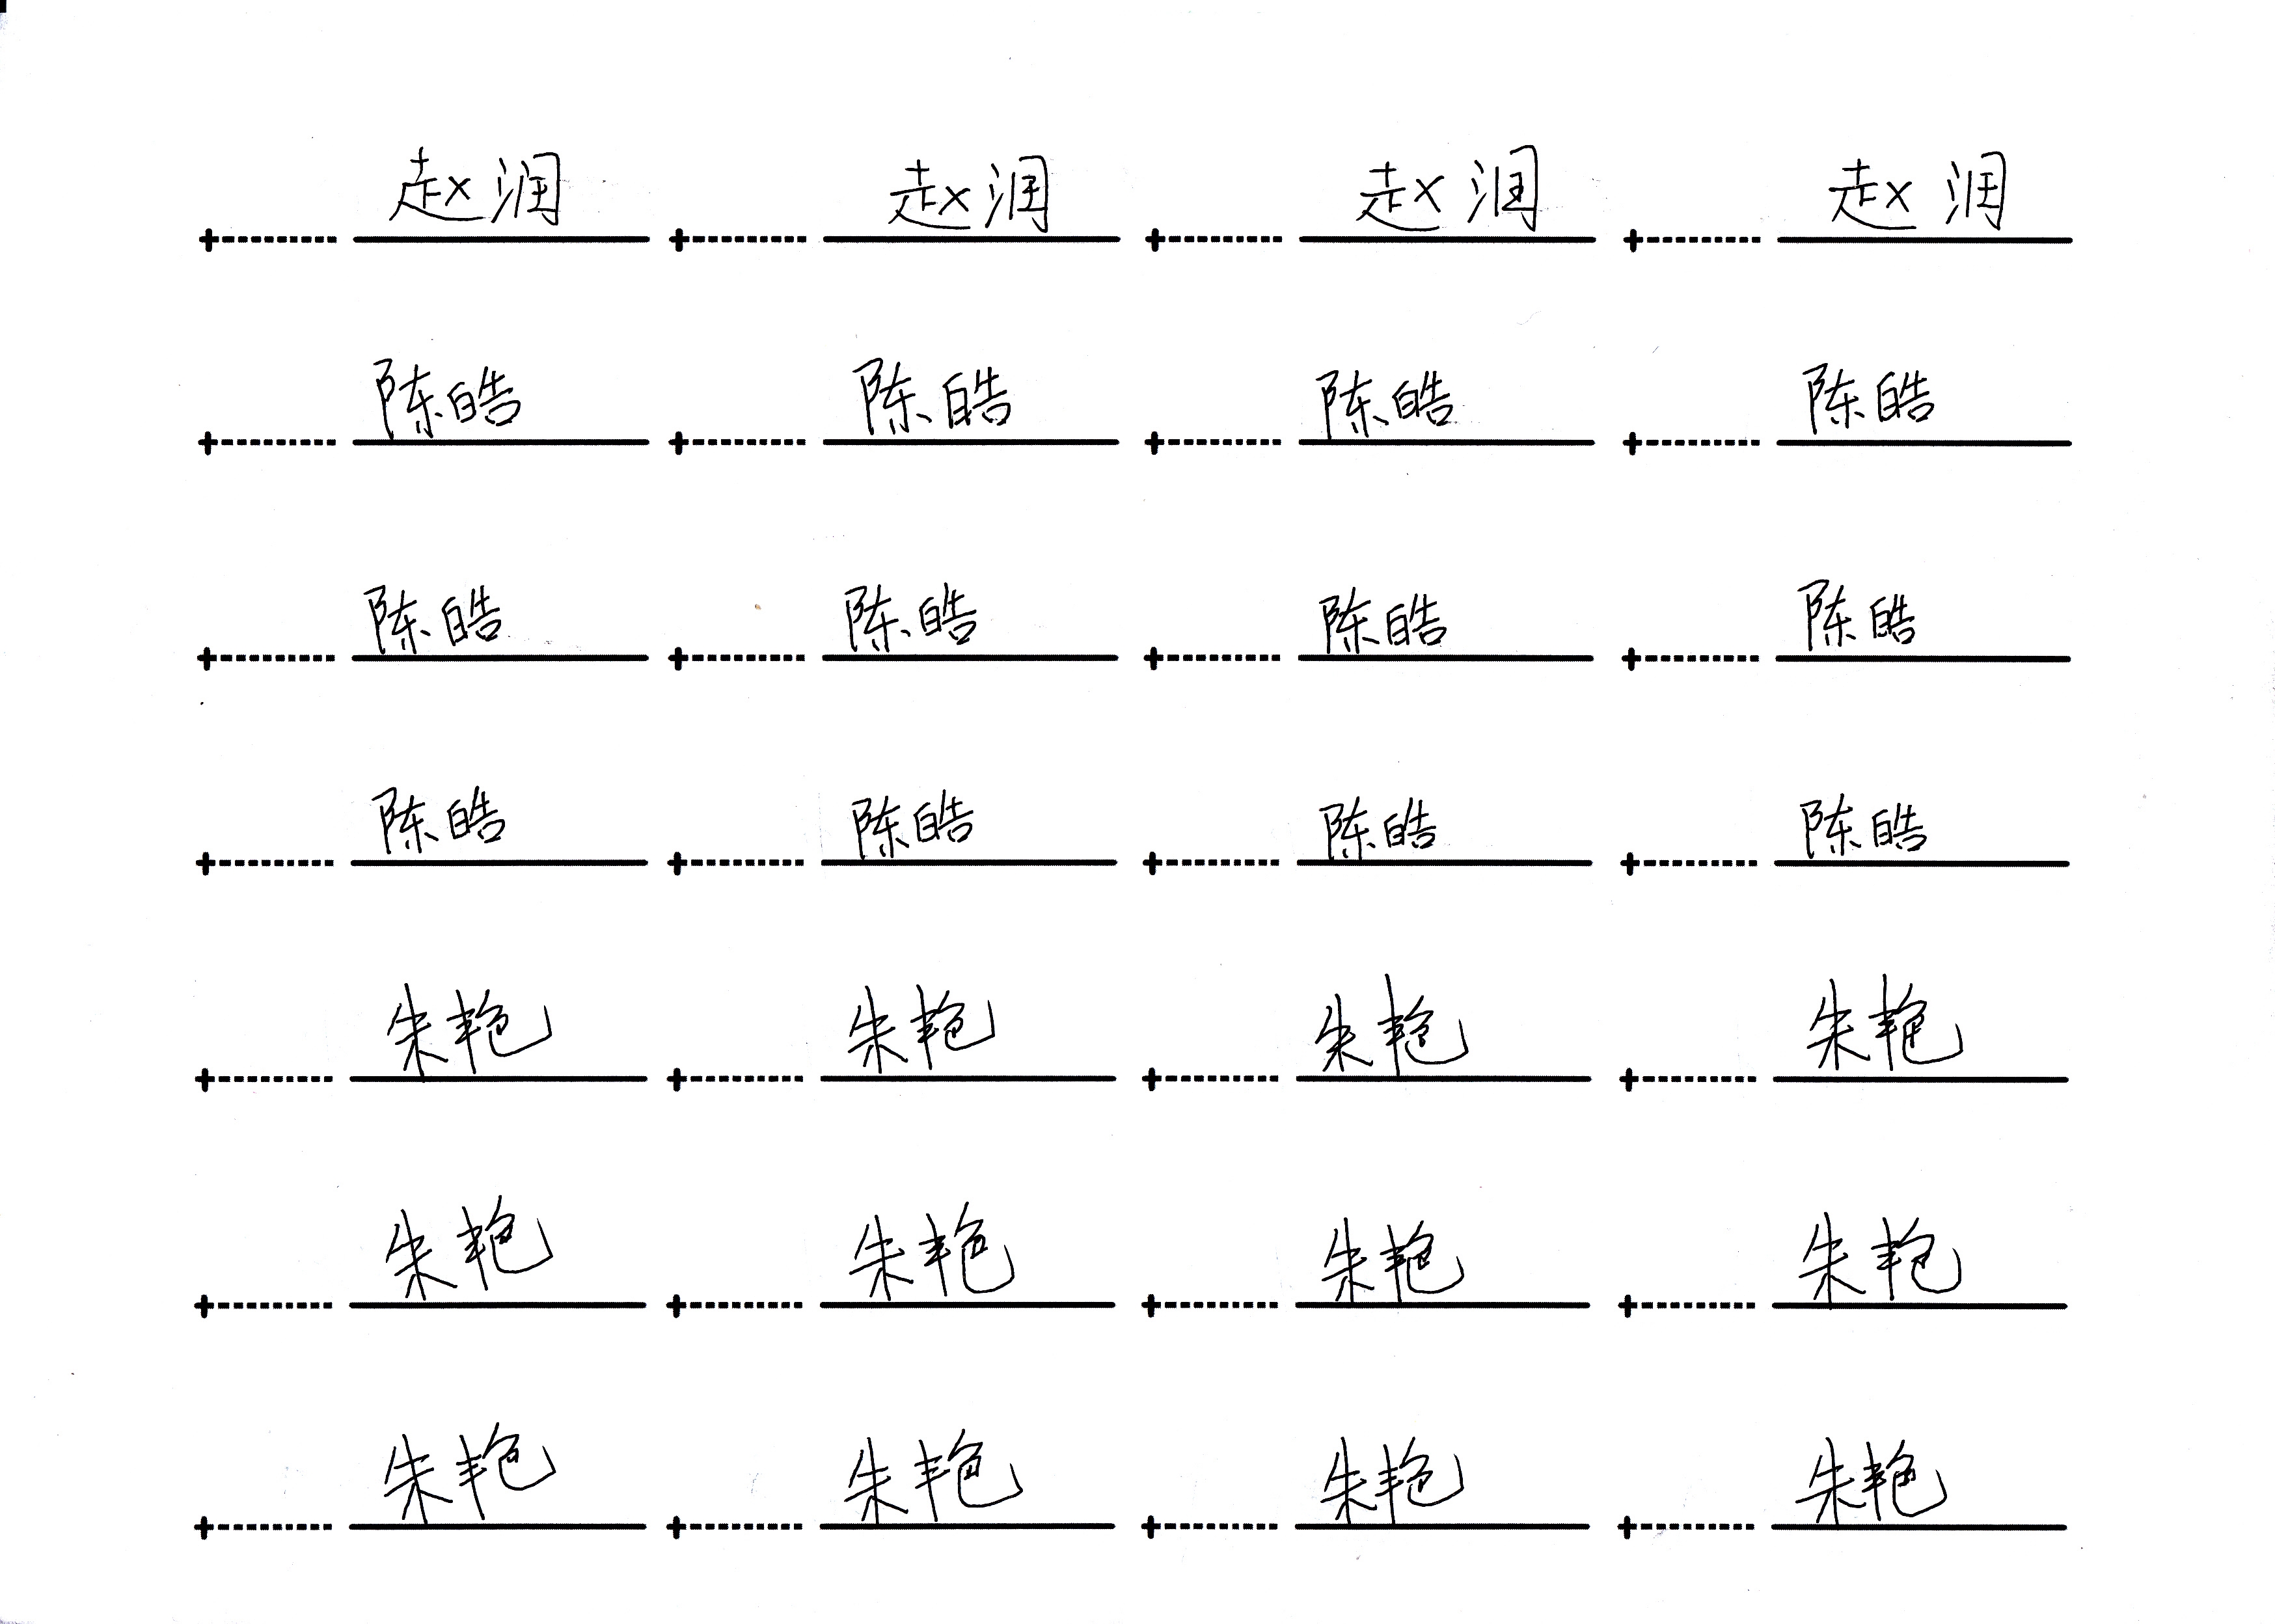 赵润 赵润 赵润 赵润
陈皓 陈皓 陈皓 陈皓
陈皓 陈皓 陈皓 陈皓
陈皓 陈皓 陈皓 陈皓
朱艳 朱艳 朱艳 朱艳
朱艳 朱艳 朱艳 朱艳
朱艳 朱艳 朱艳 朱艳